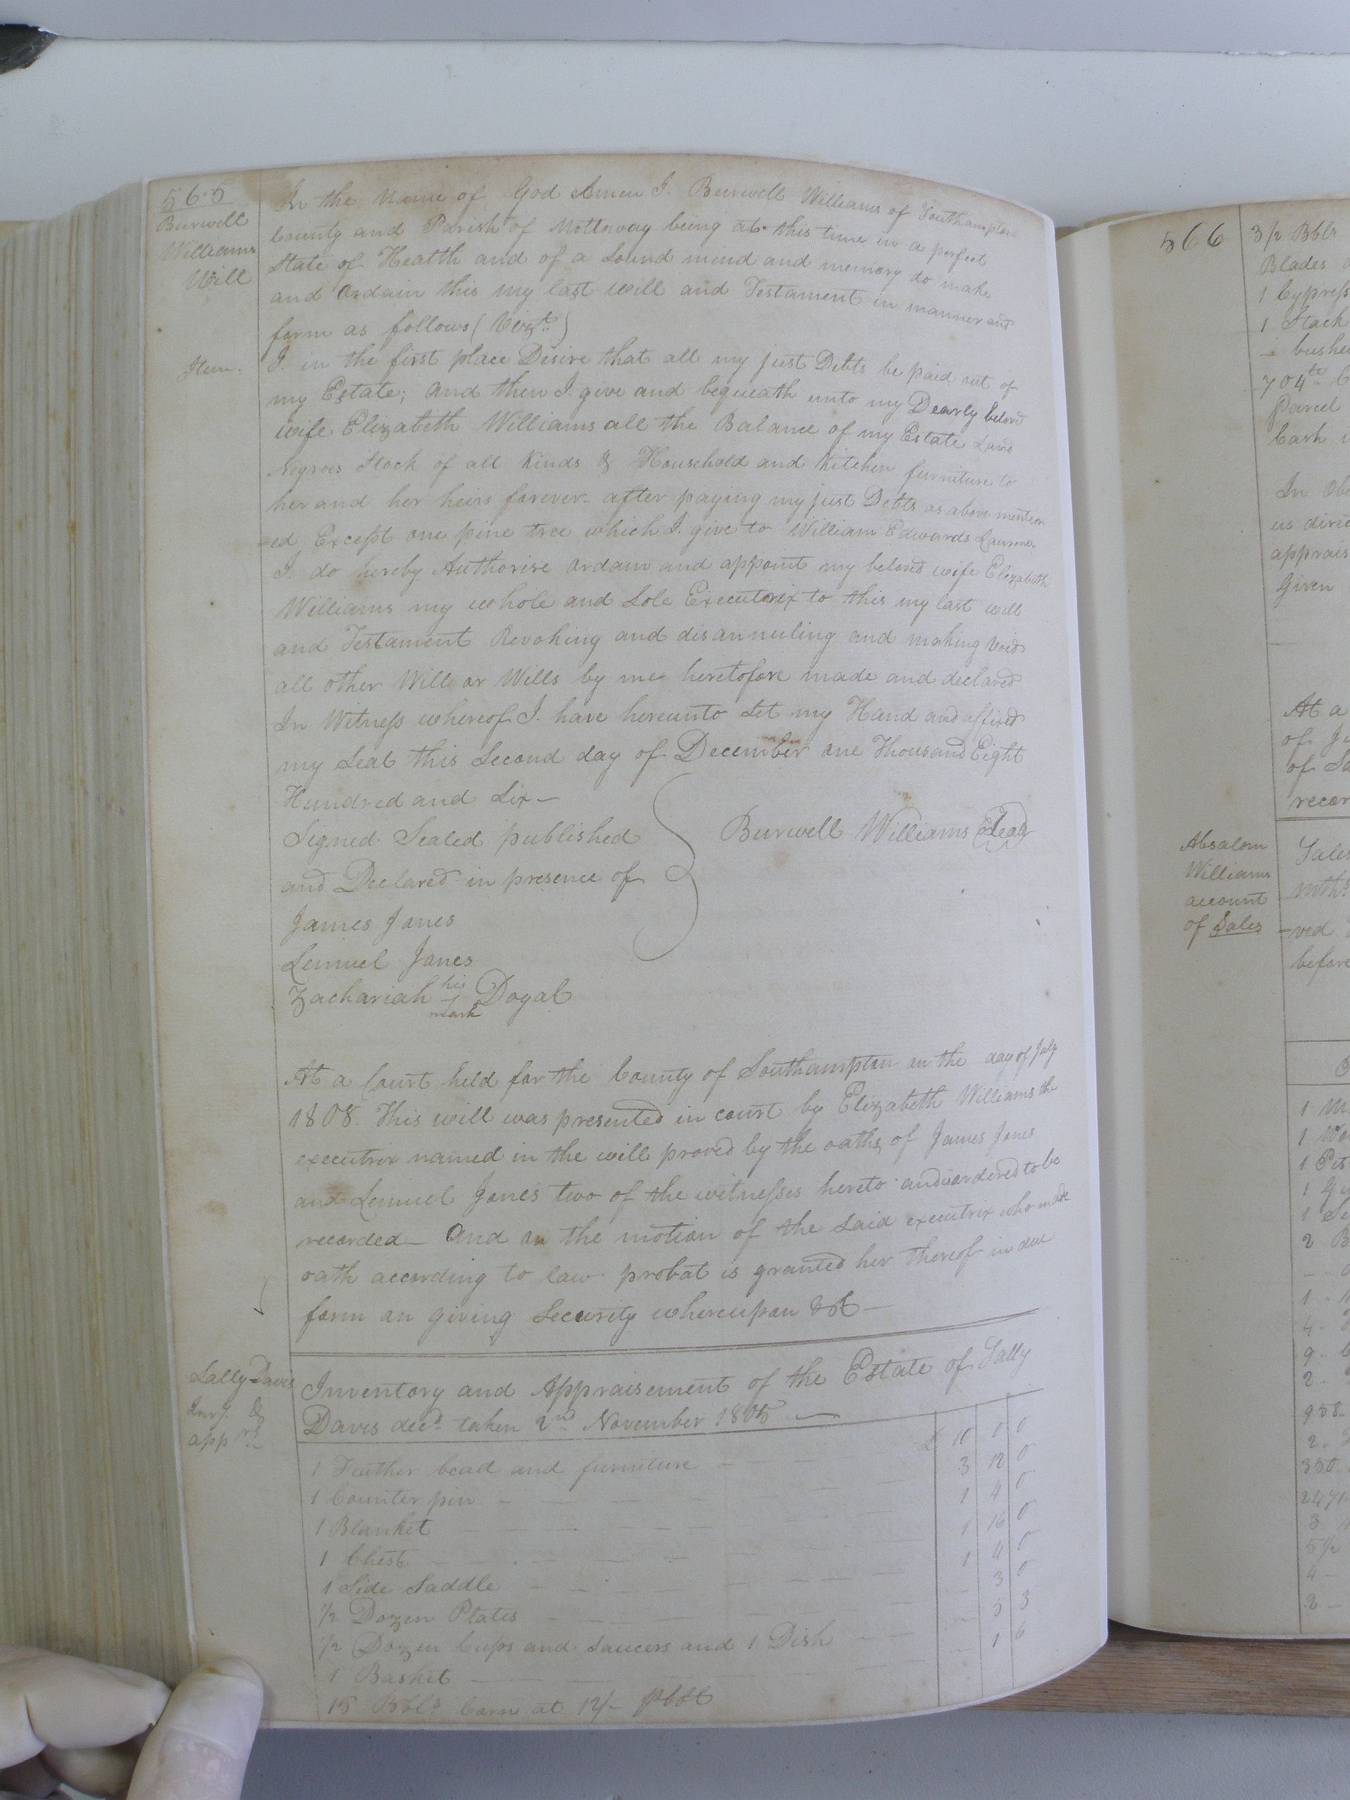 565
Burwell
Williams
Will
In the Name of God Amen I. Burwell Williams of Southampton
County and Parish of Nottoway being at this time in a perfect
State of Health and of a Sound mind and memory do make
and Ordain this my last will and Testament in manner and
form as follows (Vizt.)
Item. I. in the first place Desire that all my just Debts be paid out of
my Estate; And then I give and bequeath unto my Dearly belovd
wife Elizabeth Williams all the Balance of my Estate Land
Negroes Stock of all Kinds & Household and Kitchen furniture to
her and her heirs forever after paying my just Debts as above mention
-ed Except one pine tree which I. give to William Edwards
I. do hereby Authorise Ordain and appoint my belovd wife Elizabeth
Williams my whole and Sole Executorix to this my last will
and Testament Revoking and disannuling and making Void
all other Will or Wills by me heretofore made and declared
In Witness whereof I. have hereunto Set my Hand and affixed
my Seal this Second day of December one Thousand Eight
Hundred and Six —
Signed Sealed published
and Declared in presence of
Burwell Williams (Seal)
James Janes
Lemuel Janes
Zachariah his mark Doyal
At a Court held for the County of Southampton on the day of July
1808. This will was presented in court by Elizabeth Williams the
executrix named in the will proved by the oaths of James Janes
and Lemuel Janes two of the witnesses hereto and ordered to be
recorded — And on the motion of the said executrix who made
oath according to law probat is granted her thereof in due
form on giving Security whereupon &c —
Sally Davis
Invy. &
appmt.
Inventory and Appraisement of the Estate of Sally
Davis decd. taken 2nd November 1805 —
1 Feather bead and furniture £ 10 0 0
1 Counter pin 3 12 0
1 Blanket 1 4 0
1 Chest 1 16 0
1 Side Saddle 1 4 0
1/2 Dozen Plates - 3 0
1/2 Dozen Cups and Saucers and 1 Dish - 5 3
1 Basket - 1 6
15 Bbls. Corn at 12/-
566
3 1/2 Bbls
Blades
1 Cypress
1 Stack
bushe
704
Parcel
Cash
In Obe
us
apprais
Given
At a
of Ju
of So
recor
Absalom
Williams
account
of Sales
Sales
-ved
before
1
1
1
1
1
2
1
4
9
2
958
2
330
3
5 1/2
4
2